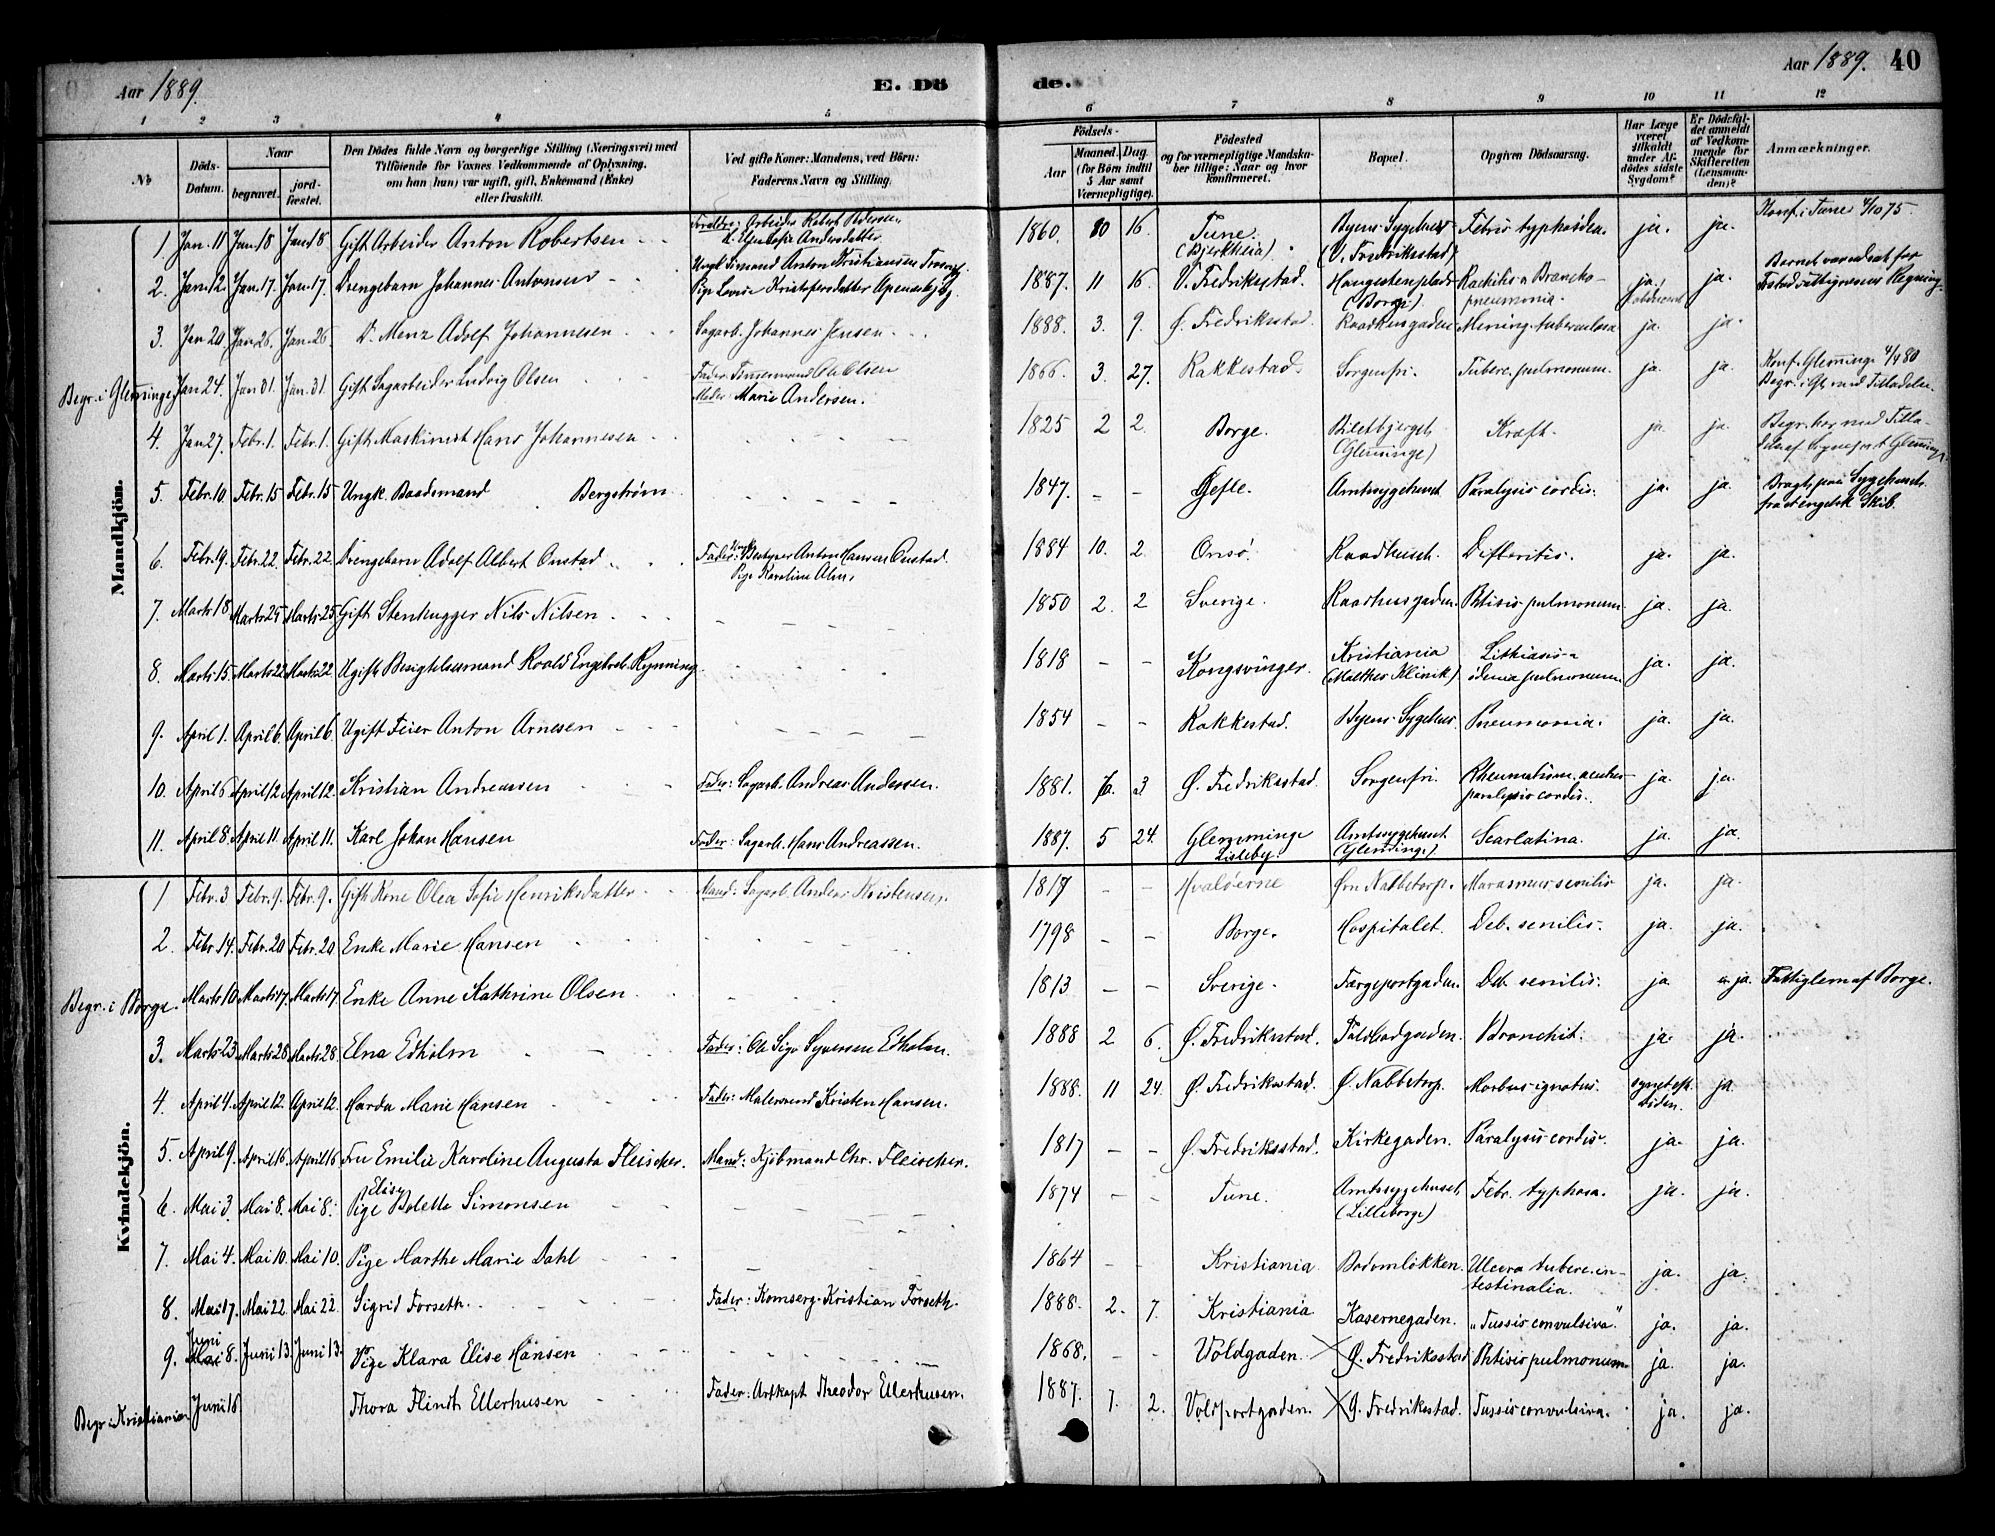 Aar 1889.
E. Dö
de.
Aar 1889.
40
1 2 3 4 5
6 7 8 9 10 11 12
No
Döds-
Datum.
Naar
begravet.
jord-
fæstet.
Den Dödes fulde Navn og borgerlige Stilling (Næringsvei) med
Tilföiende for Voxnes Vedkommende af Oplysning,
om han (hun) var ugift, gift, Enkemand (Enke)
eller fraskilt.
Ved gifte Koner: Mandens, ved Börn:
Faderens Navn og Stilling.
Födsels-
Aar
Maaned. Dag.
(for Börn indtil
5 Aar samt
Værnepligtige).
Födested
og for værnepligtige Mandska-
ber tillige: Naar og hvor
konfirmeret.
Bopæl.
Opgiven Dödsaarsag.
Har Læge
været
tilkaldt
under Af-
dödes sidste
Sygdom?
Er Dödsfal-
det anmeldt
af Vedkom-
mende for
Skifteretten
(Lensman-
den)?
Anmærkninger.
Mandkjön.
1. Jan. 11 Jan. 18 Jan. 18 Gift Arbeider Anton Robertsen Forældre: Arbeider Robert Pedersen, 1860. 10 16. Tune. Byens Sygehus Febris typhoidea. ja. ja. Konf. i Tune 1/10 75.
(Bjerkheia) (V. Fredriksstad)
2. Jan. 12. Jan. 17. Jan. 17. Drengebarn Johannes Antonsen Ungk. Simand Anton Kristiansen 1887. 11 16. V. Fredriksstad. (Borge) Rachitis Broncho- ja. ja. Barnet var udsat for
Pige Lovise Kristofersdatter pneumonia. Regning.
3. Jan 20. Jan. 26. Jan. 26. D. Menz Adolf Johannesen Sagarb. Johannes Jensen 1888. 3. 9. Ø. Fredriksstad. Raadhusgaden Mening. tuberculosa ja. ja.
Begr. i Glemminge Jan 24. Jan 31. Jan. 31. Gift Sagarbeider Ludvig Olsen Fader: Tømmermand Ole Olsen 1866. 3. 27. Rakkestad. Sorgenfri. Tuberc. pulmonum. ja. ja. Konf. Glemminge 4/4 80
Moder: Marie Andersen. Begr. i Gl. med Tilladelse.
4. Jan 27. Febr. 1. Febr. 1. Gift Maskinist Hans Johannesen 1825 2 2. Borge. (Glemminge) Kræft. ja. ja. Begr. her med Tilla-
delse af Sogneprest Glemminge.
5. Febr. 10 Febr. 15 Febr. 15 Ungk. Baadsmand Bergstrøm 1847. Gefle. Amtssygehuset Paralysis cordis. ja. ja. Bragt paa Sygehuset
fra et engelsk Skib.
6. Febr. 19. Febr. 22. Febr. 22 Drengebarn Adolf Albert Onstad Fader: Ungk. Bestyrer Anton Hansen Onstad. 1884 10. 2. Onsø. Raadhuset. Difteritis. ja. ja.
Pige Karoline Alm.
7. Marts 18 Marts 25 Marts 25 Gift Stenhugger Nils Nilsen 1850 2. 2 Sverige. Raadhusgaden. Phtisis pulmonum ja. ja.
8. Marts 15. Marts 22 Marts 22 Ugift Besigtelsesmand Roald Engebret Rynning 1818 Kongsvinger. Kristiania Lithiasis ja. ja.
(Malthes Klinik) ødema pulmonum.
9. April 1. April 6. April 6. Ugift Feier Anton Arnesen 1854 Rakkestad. Byens Sygehus Pneumonia. ja. ja.
10. April 6 April 12 April 12. Kristian Andreassen Fader: Sagarb. Andreas Andersen. 1881. 3 Ø. Fredriksstad. Sorgenfri. Rheumatism. ja. ja.
paralysis cordis.
11. April 8. April 11. April 11. Karl Johan Hansen Fader: Sagarb. Hans Andreassen. 1887. 5 24. Glemminge Amtssygehuset Scarlatina. ja. ja.
Lisleby. (Glemminge)
Kvindekjön.
1 Febr. 3 Febr. 9. Febr. 9. Gift Kone Olea Sofie Henriksdatter Mand: Sagarb. Anders Kristensen. 1817 Hvaløerne Ørn Nabbetorp. Marasmus senilis ja. ja.
2. Febr. 14. Febr. 20 Febr. 20 Enke Marie Hansen 1798 Borge. Hospitalet. Deb. senilis. ja. ja.
Begr. i Borge. Marts 10 Marts 17. Marts 17 Enke Anne Kathrine Olsen 1813 Sverige. Færgeportgaden. Deb. senilis. ja ja. Fattiglem af Borge.
3. Marts 23 Marts 28 Marts 28. Elna Edholm Fader: Ole Syversen Edholm. 1888 2 6. Ø. Fredriksstad. Toldbodgaden. Bronchit. ja. ja.
4. April 4. April 12. April 12. Harda Marie Hansen Fader: Malersvend Kristen Hansen. 1888. 11 24. Ø. Fredriksstad. Ø. Nabbetorp. Morbus ignotus. synet eft. ja.
Døden.
5. April 9. April 16. April 16. Fru Emilie Karoline Augusta Fleischer. Mand: Kjöbmand Chr. Fleischer. 1817 Ø. Fredriksstad. Kirkegaden. Paralysis cordis. ja. ja.
6. Mai 3. Mai 8. Mai 8. Pige Elise Bolette Simonsen 1874 Tune. Amtssygehuset, Febr. typhosa. ja. ja.
(Lilleborge)
7. Mai 4. Mai 10. Mai 10. Pige Marthe Marie Dahl 1864 Kristiania Badomløkken. Ulcera tuberc. in- ja. ja.
testinalia.
8. Mai 17. Mai 22. Mai 22. Sigrid Forseth. Fader: Komserg. Kristian Forseth. 1888. 2. 7. Kristiania Kasernegaden. "Tussis convulsiva." ja. ja.
9. Mai Juni 8. Juni 13. Juni 13. Pige Klara Elise Hansen 1868. Voldgaden. Ø. Fredriksstad Phtisis pulmonum ja. ja.
Begr. i Kristiania Juni 18 Thora Flindt Ellerhusen Fader: Artkapt Theodor Ellerhusen. 1887. 7. 2. Voldportgaden. Ø. Fredriksstad. Tussis convulsiva. ja. ja.